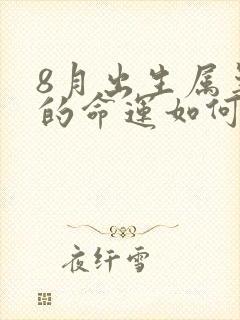 8月出生属
的命运如何
夜纤雪